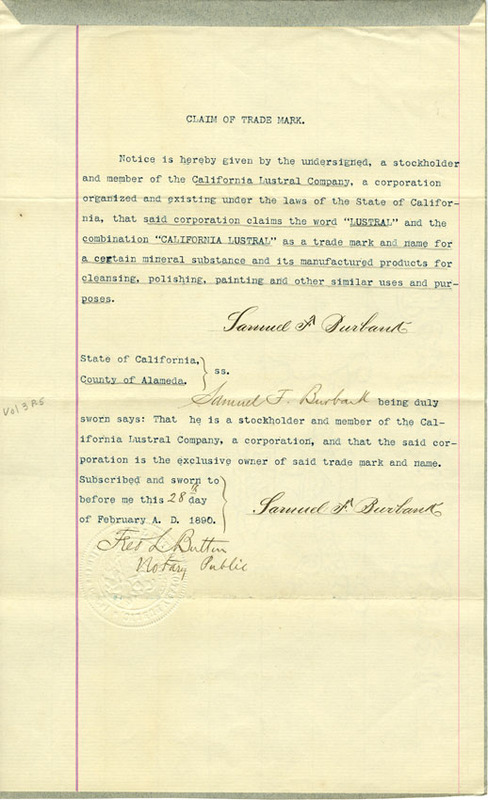 CLAIM OF TRADE MARK.
Notice is hereby given by the undersigned, a stockholder
and member of the California Lustral Company, a corporation
organized and existing under the laws of the State of Califor-
nia, that said corporation claims the word "LUSTRAL" and the
combination "CALIFORNIA LUSTRAL" as a trade mark and name for
a certain mineral substance and its manufactured products for
cleansing, polishing, painting and other similar uses and pur-
poses.
Samuel F Burbank
State of California,
County of Alameda. } ss.
Samuel F. Burbank being duly
sworn says: That he is a stockholder and member of the Cal-
ifornia Lustral Company, a corporation, and that the said cor-
poration is the exclusive owner of said trade mark and name.
Subscribed and sworn to
before me this 28th day
of February A. D. 1890.
Samuel F Burbank
Fred L Button
Notary Public
Vol 3 P5